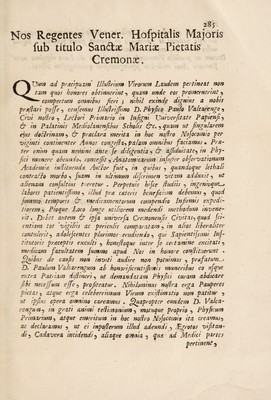 285
Nos Regentes Vener. Hospitalis Majoris
sub titulo Sanctæ Mariæ Pietatis
Cremonæ.
QUum ad præcipuam Illustrium Virorum Laudem pertineat non
tam quos honores obtinuerint, quam unde eos promeruerint,
compertum omnibus fieri; nihil exinde dignius a nobis
præstari posse, censemus Illustrissimo D. Physico Paulo Valcarengo,
Civi nostro, Lectori Primario in Insigni Universitate Papiensi,
& in Palatinis Mediolanensibus Scholis &c. quam ut singularem
ejus doctrinam, & præclara merita in hoc nostro Nosocomio per
viginti continentes Annos congesta, palam omnibus faciamus. Præ-
ter enim quam nomine dare se diligentia, & assiduitate, in Phy-
sici munere obeundo, concessit, Anatomicarum insuper observationum
Academiæ instituendæ Auctor fuit, in quibus, quandoque lethali
contracto morbo, suam in ultimum discrimen vitam adduxit, ut
alienam consultius tueretur. Perpetuis hisce studiis, ingenuoque,
labori patientissimo, illud præ cæteri beneficium debemus, quod
summo temporis & medicamentorum compendio Infirmis expedi-
tiorem, Pioque Loco longe utiliorem medendi methodum invene-
rit. Debet autem & ipsa universa Cremonensis Civitas, quod sci-
entiam tot vigiliis ac periculis comparatam, in alios liberaliter
contulerit, adolescentes plurimos erudiendo, qui Sapientissimi In-
stitutoris præceptis exculti, honestoque inter se certamine excitati,
medicam facultatem summo apud Nos in honore constituerunt.
Quibus de causis non inviti audire non potuimus, præfatum
D. Paulum Valcarengum ab honorificentissimis muneribus ea usque
extra Patriam distineri, ut demandatam Physici curam abdicare
sibi necessum esse, profiteatur. Nihilominus nostra erga Pauperes
pietas, atque erga celeberrimum Virum existimatio non patitur
ut ipsius opera omnino careamus. Quapropter eundem D. Valca-
rengum, in grati animi testimonium, motuque proprio, Physicum
Primarium, atque emeritum in hoc nostro Nosocomio ita creamus,
ac declaramus, ut ei impusterum illud adeundi, Ægrotos visitan-
di, Cadavera incidendi, aliaque omnia, quæ ad Medici partes
pertinent,